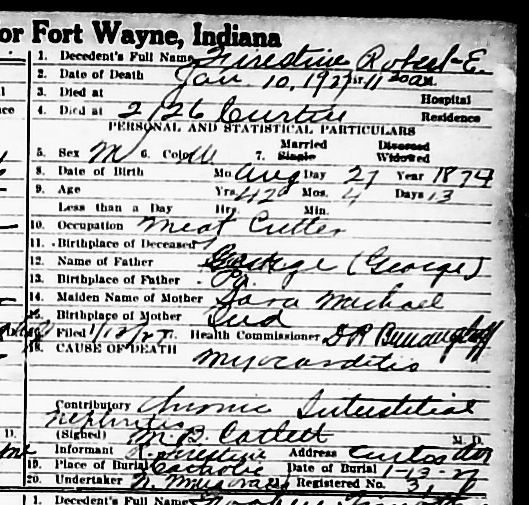 or Fort Wayne, Indiana
1. Decedent's Full Name Firestine Robert E.
2. Date of Death Jan. 10, 1927 Hr. 11 30 am
3. Died at Hospital
4. Died at 2126 Curtis Residence
PERSONAL AND STATISTICAL PARTICULARS
5. Sex M 6. Color W 7. Married Single Divorced Widowed
8. Date of Birth Mo Aug Day 27 Year 1874
9. Age Yrs. 42 Mos. 4 Days 13
Less than a Day Hrs. Min.
10. Occupation Meat Cutter
11. Birthplace of Deceased
12. Name of Father George (George)
13. Birthplace of Father Pa.
14. Maiden Name of Mother Sara Michael
15. Birthplace of Mother Ind
16. Filed 1/12/27 17. Health Commissioner
18. CAUSE OF DEATH
Myocarditis
Contributory Chronic Interstitial
Nephritis
(Signed) M. B. Catlett M. D.
Informant R. Firestine Address Curtis
19. Place of Burial Catholic Date of Burial 1-13-27
20. Undertaker Registered No.
1. Decedent's Full Name